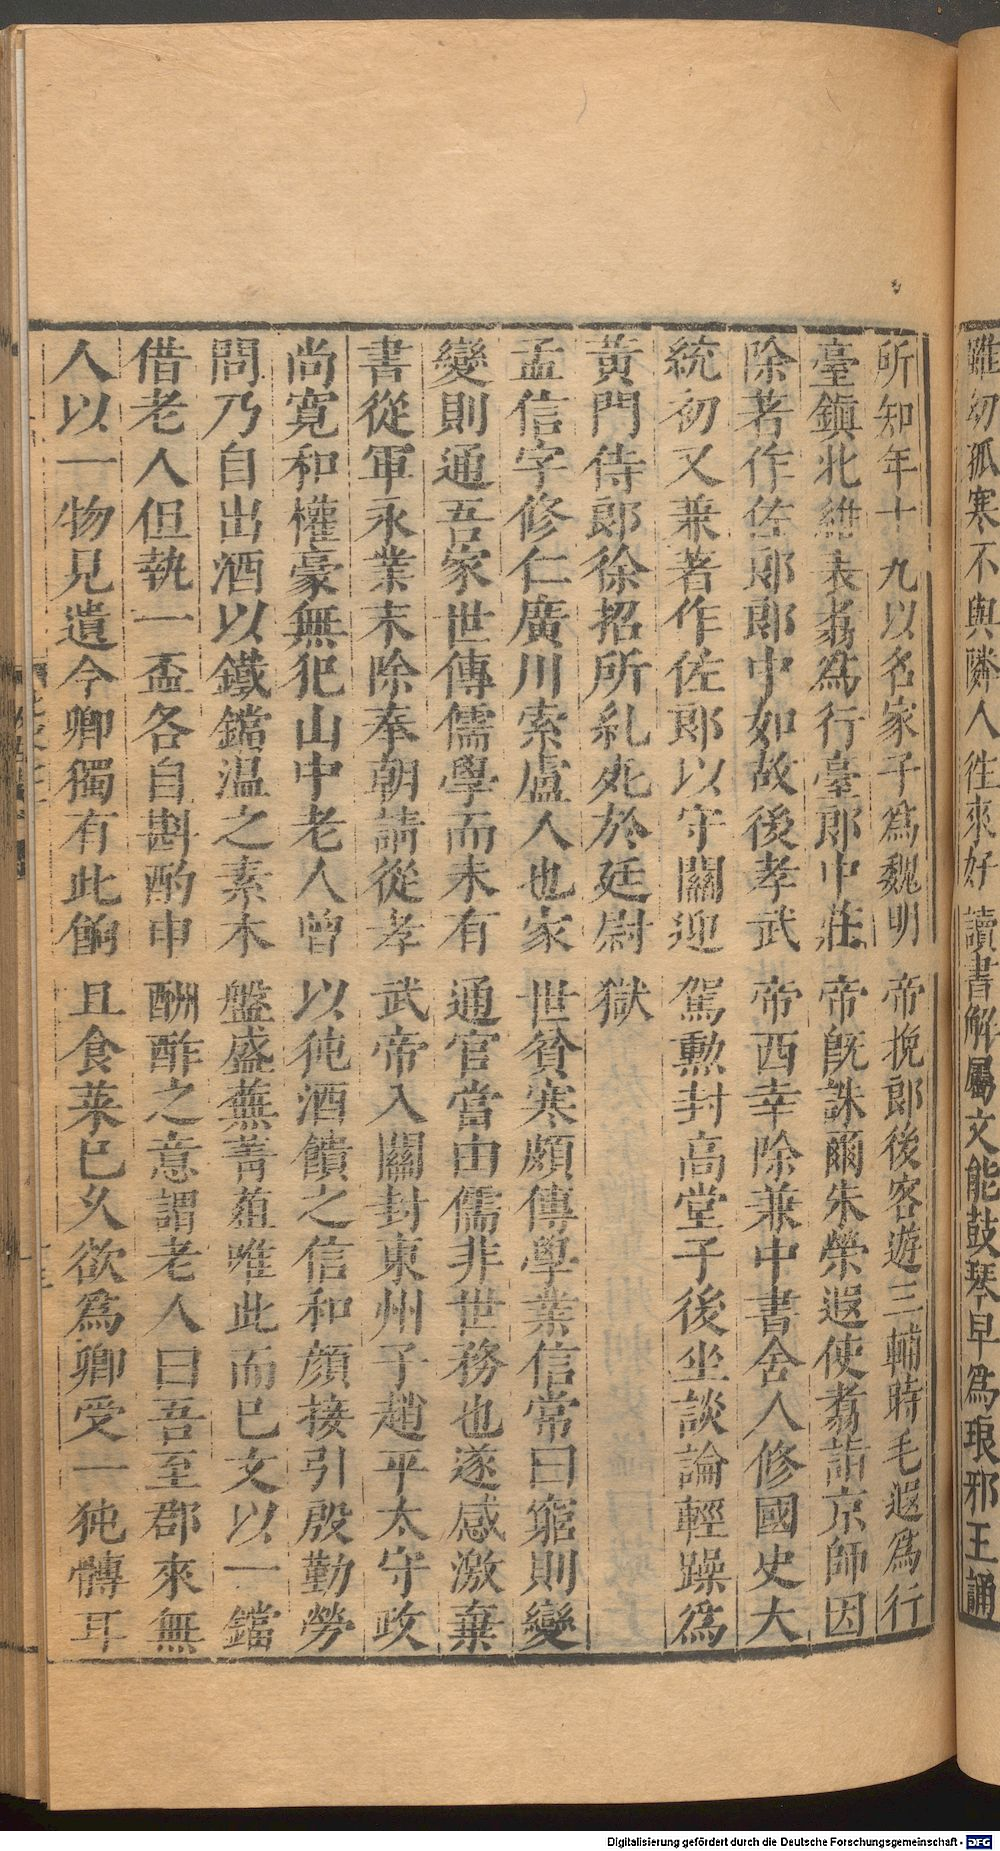 雖幼孤寒不與隣人徃來好讀書解屬文能鼓琴早爲琅邪王誦
所知年十九以名家子爲魏明帝挽郎後客遊三輔時毛遐爲行
臺鎮北維表翥爲行臺郎中莊帝旣誅爾朱榮遐使翥詣京師因
除著作佐郎郎中如故後孝武帝西幸除兼中書舍人修國史大
統初又兼著作佐郎以守關迎駕勲封高堂子後坐談論輕躁爲
黃門侍郎徐招所糺死於廷尉獄
孟信字修仁廣川索盧人也家世貧寒頗傳學業信常曰窮則變
變則通吾家世傳儒學而未有通官當由儒非世務也遂感激棄
書從軍永業末除奉朝請從孝武帝入關封東州子趙平太守政
尚寛和權豪無犯山中老人曾以㹠酒饋之信和顔接引殷勤勞
問乃自出酒以鐵鐺温之素木盤盛蕪菁葅唯此而已又以一鐺
借老人但執一盃各自斟酌申酬酢之意謂老人曰吾至郡來無
人以一物見遺今卿獨有此餉且食菜已久欲爲卿受一㹠髆耳
Digitalisierung gefördert durch die Deutsche Forschungsgemeinschaft - DFG